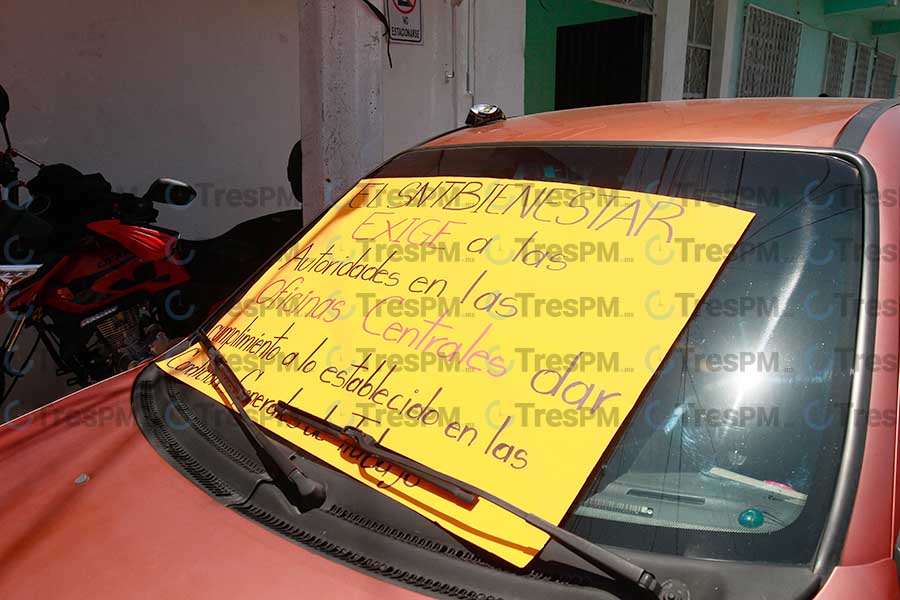 NO
ESTACIONARSE
El SNTBIENESTAR
EXIGE a las
Autoridades en las
Oficinas Centrales dar
cumplimiento a lo establecido en las
Condiciones Generales de Trabajo
TresPM